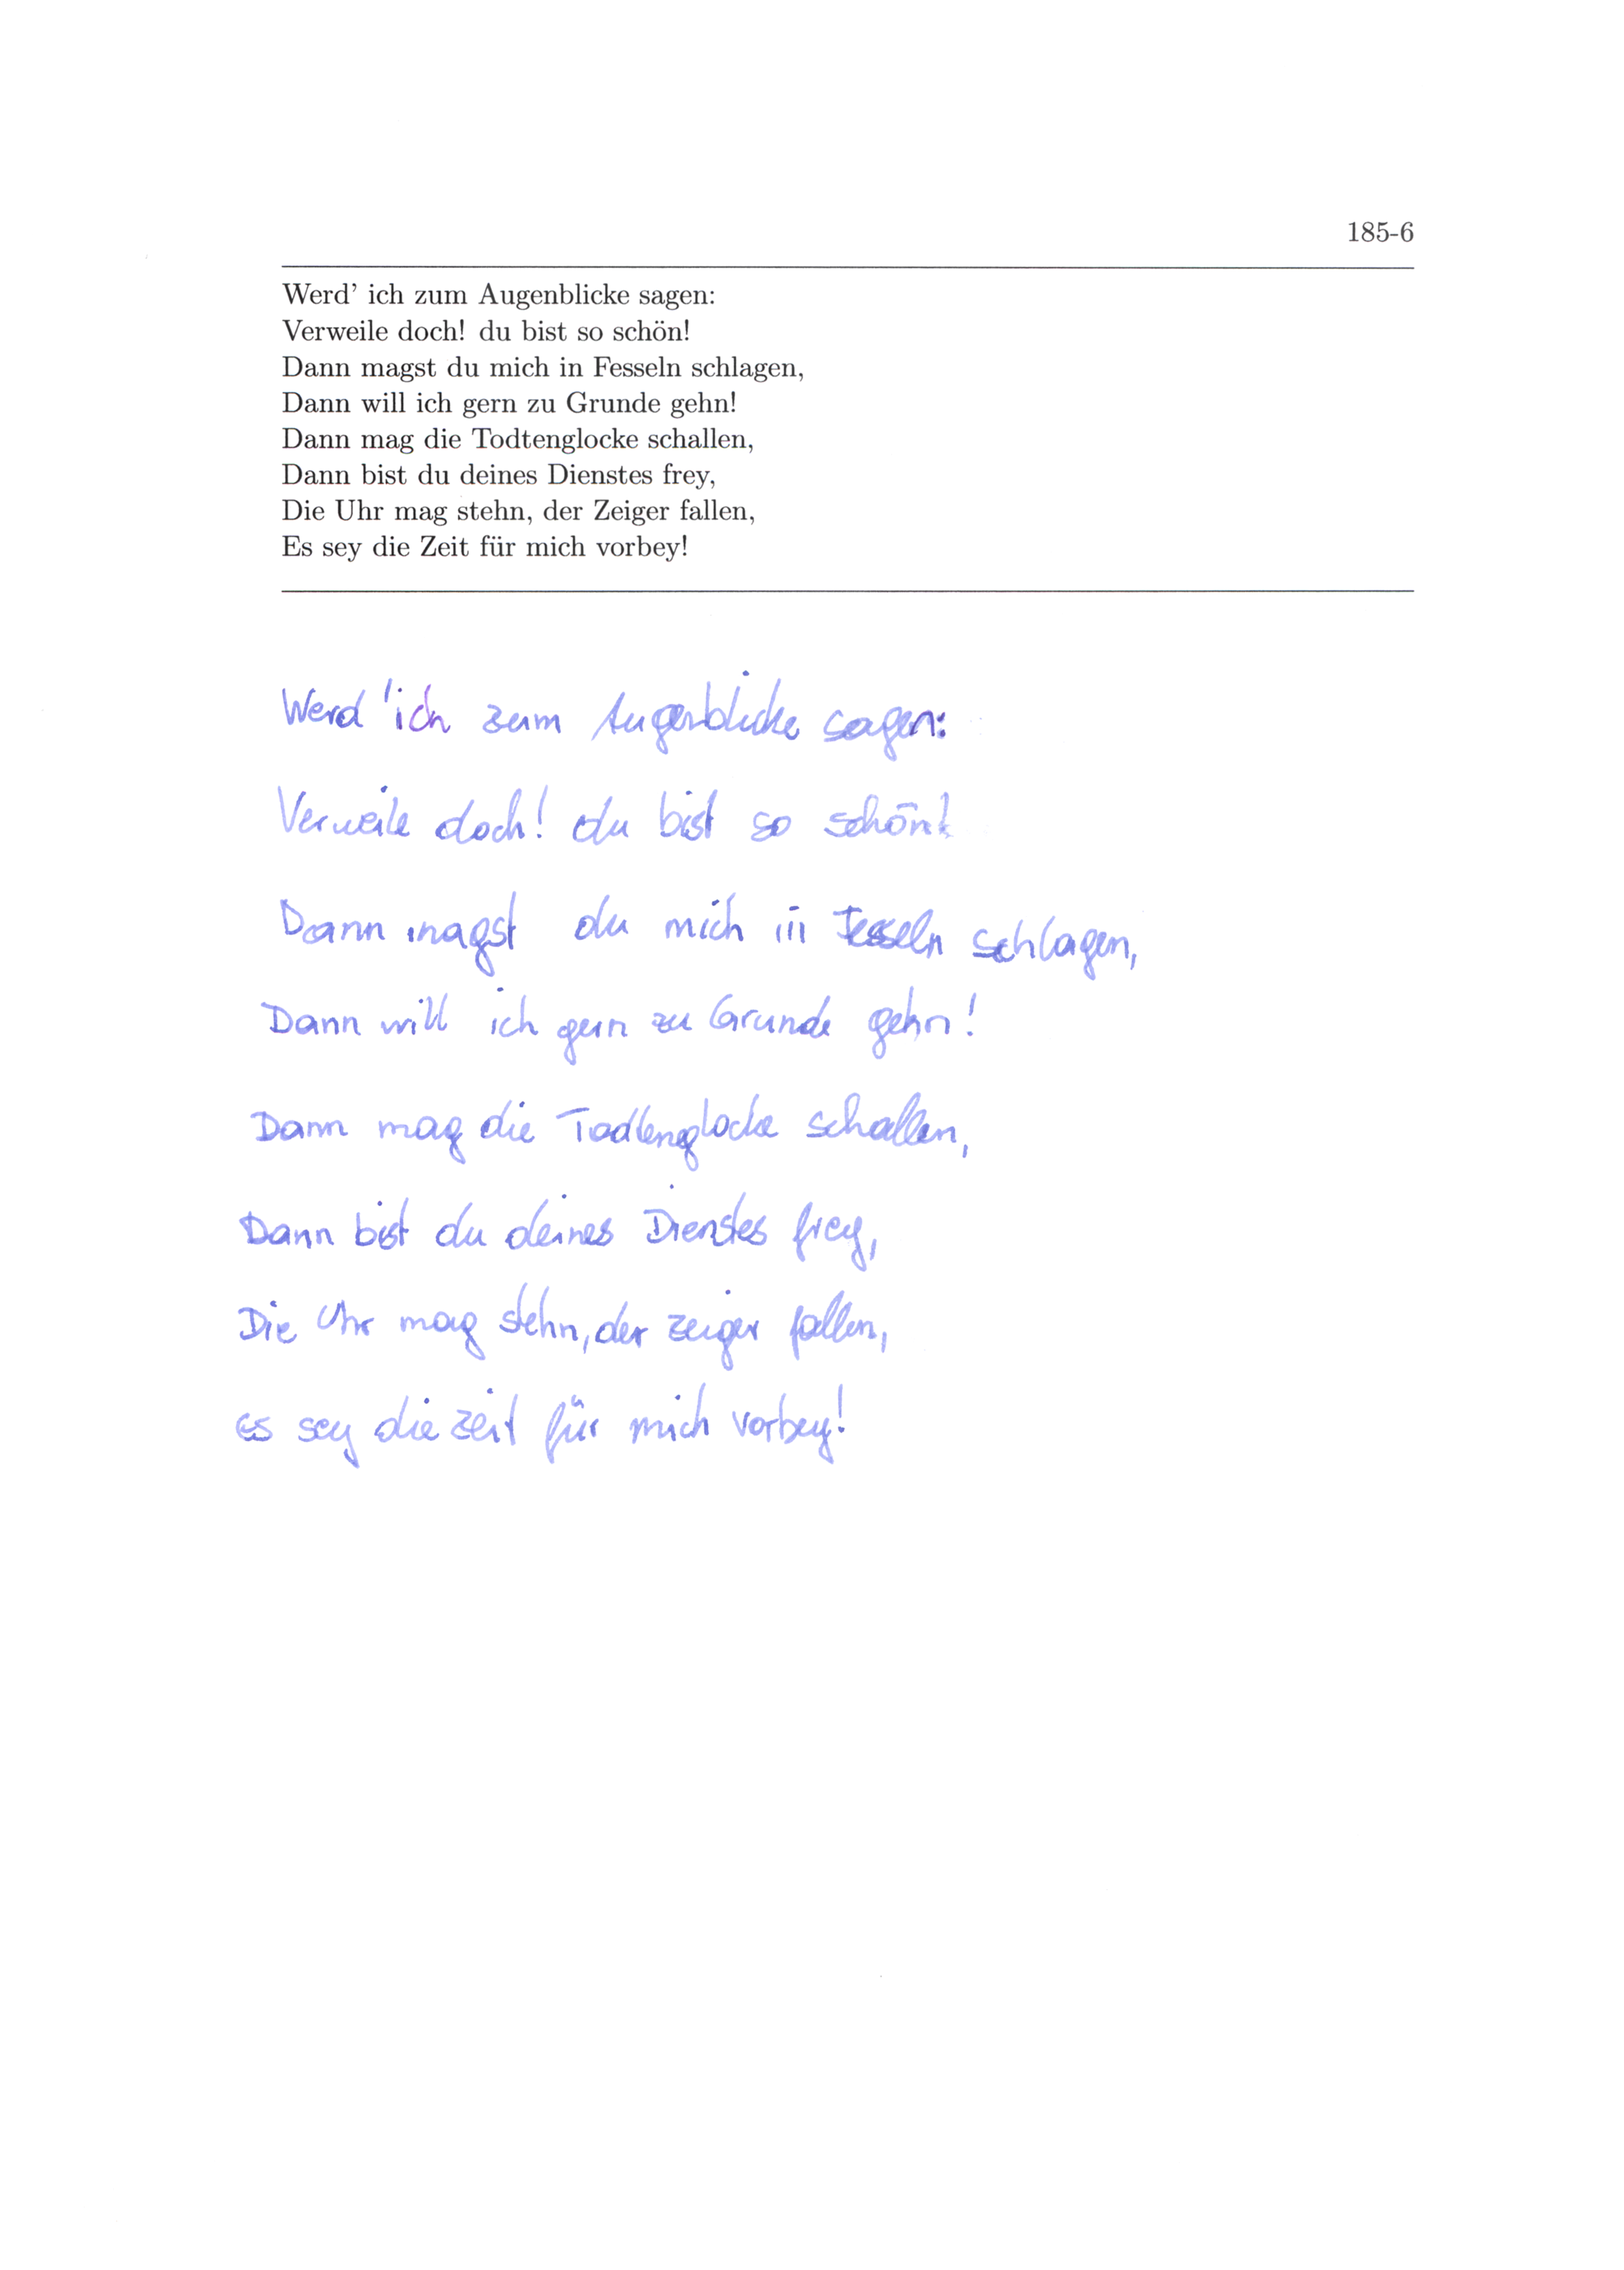 185-6
Werd' ich zum Augenblicke sagen:
Verweile doch! du bist so schön!
Dann magst du mich in Fesseln schlagen,
Dann will ich gern zu Grunde gehn!
Dann mag die Todtenglocke schallen,
Dann bist du deines Dienstes frey,
Die Uhr mag stehn, der Zeiger fallen,
Es sey die Zeit für mich vorbey!
Werd 'ich zum Augenblicke sagen:
Verweile doch! du bist so schön!
Dann magst du mich in Fesseln schlagen,
Dann will ich gern zu Grunde gehn!
Dann mag die Todtenglocke schallen,
Dann bist du deines Dienstes frey,
Die Uhr mag stehn, der Zeiger fallen,
Es sey die Zeit für mich vorbey!